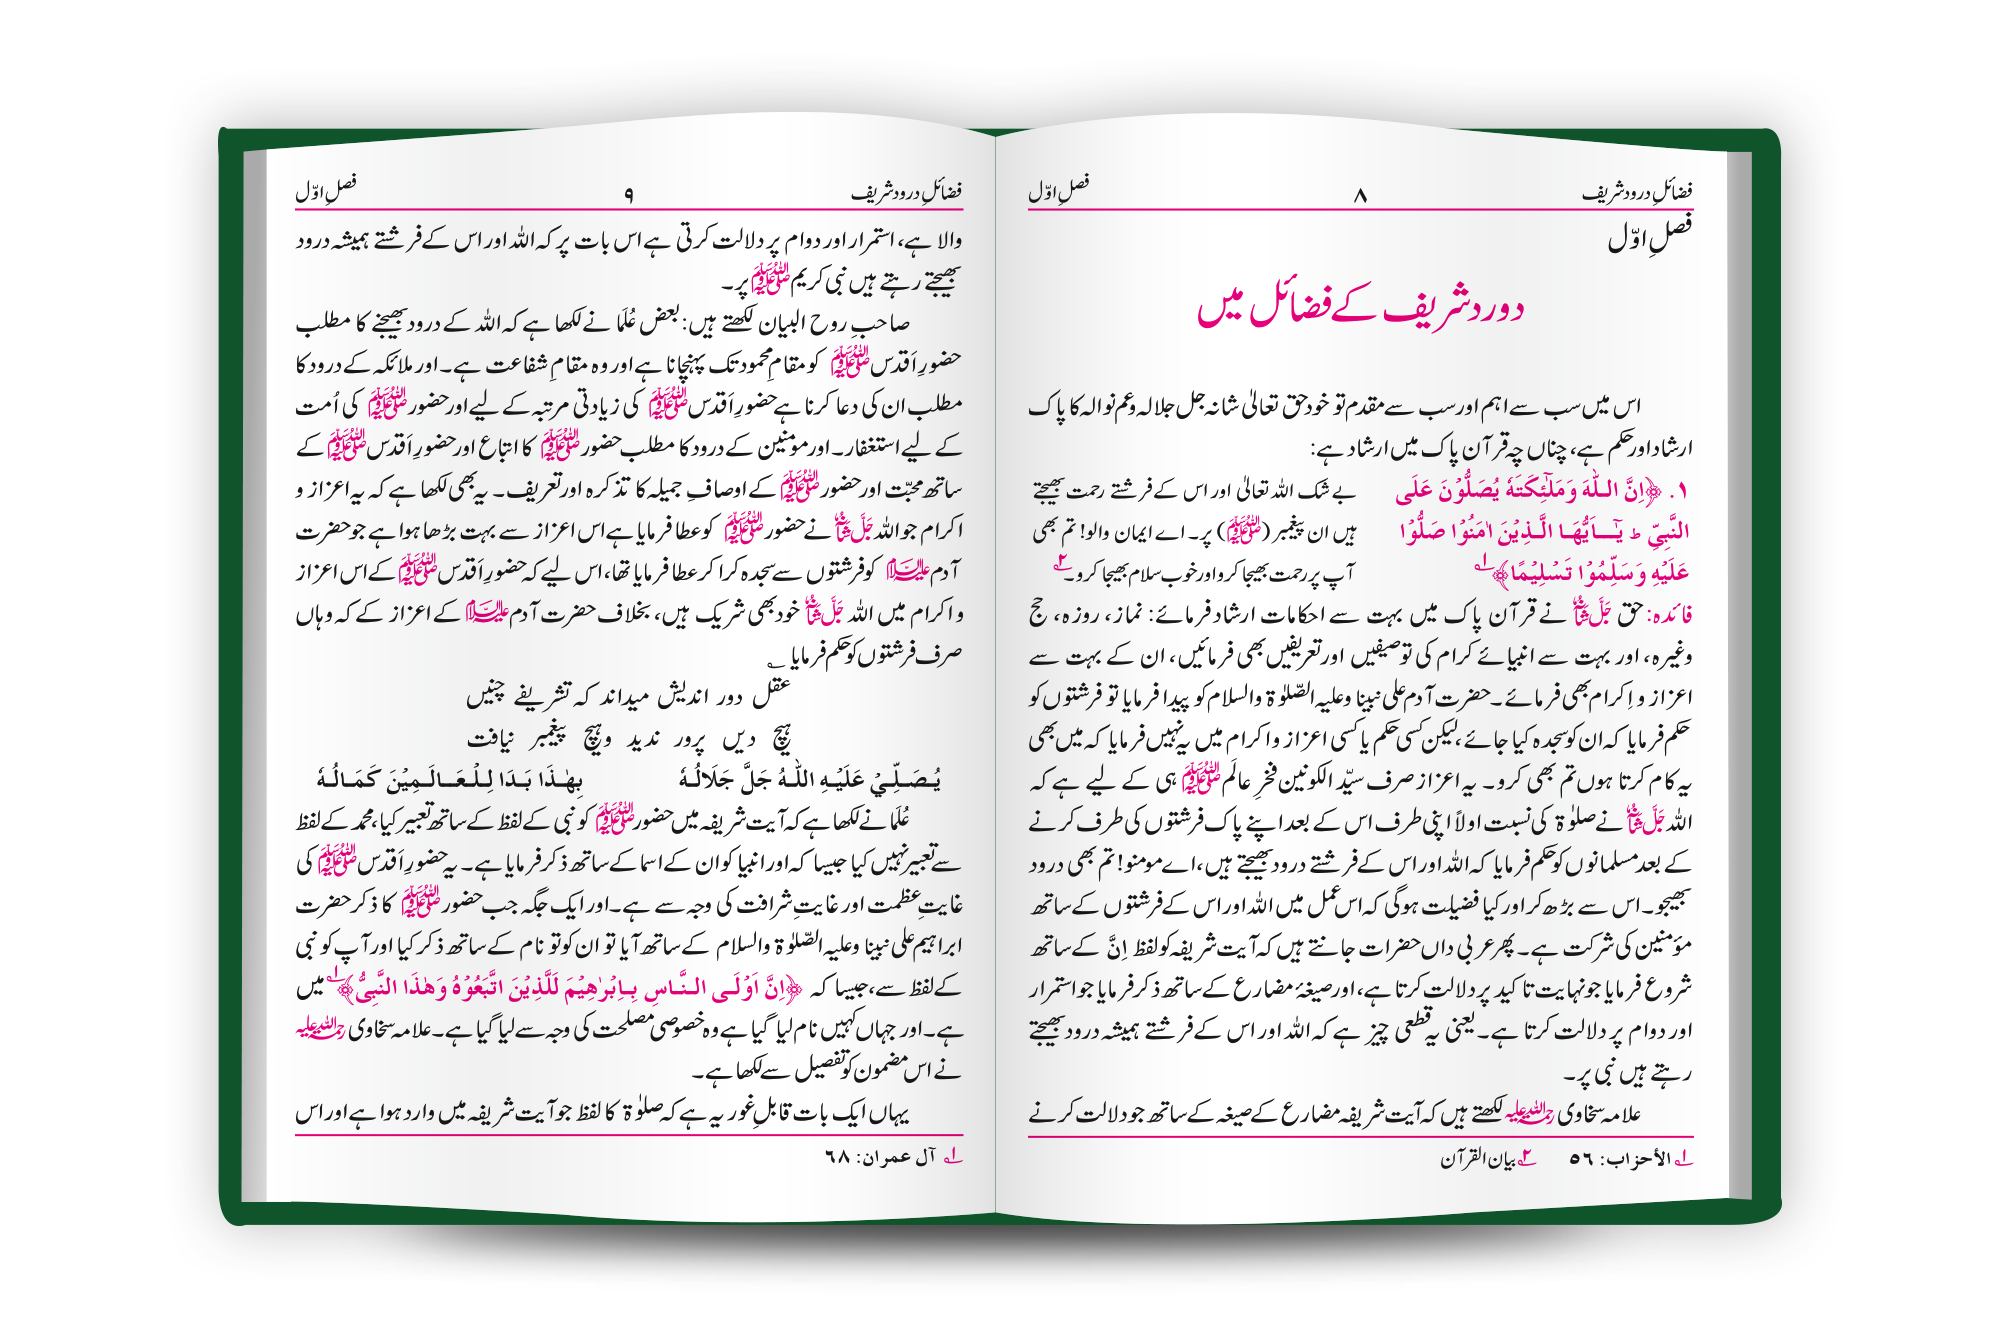 فضائلِ درود شریف ۸ فصلِ اوّل
فصلِ اوّل
دورد شریف کے فضائل میں
اس میں سب سے اہم اور سب سے مقدم تو خود حق تعالیٰ شانہ جل جلالہ وعم نوالہ کا پاک
ارشاد اور حکم ہے، چناں چہ قرآن پاک میں ارشاد ہے:
۱. ﴿اِنَّ اللّٰهَ وَمَلٰٓئِكَتَهٗ يُصَلُّوْنَ عَلَى
النَّبِيِّ ط يٰٓـاَيُّهَا الَّذِيْنَ اٰمَنُوْا صَلُّوْا
عَلَيْهِ وَسَلِّمُوْا تَسْلِيْمًا﴾ ۱؎
بے شک اللہ تعالیٰ اور اس کے فرشتے رحمت بھیجتے
ہیں ان پیغمبر (ﷺ) پر۔ اے ایمان والو! تم بھی
آپ پر رحمت بھیجا کرو اور خوب سلام بھیجا کرو۔ ۲؎
فائدہ: حق جَلَّ شَانُہٗ نے قرآن پاک میں بہت سے احکامات ارشاد فرمائے: نماز، روزہ، حج
وغیرہ، اور بہت سے انبیائے کرام کی توصیفیں اور تعریفیں بھی فرمائیں، ان کے بہت سے
اعزاز و اِکرام بھی فرمائے۔ حضرت آدم علی نبینا وعلیہ الصّلوٰۃ والسلام کو پیدا فرمایا تو فرشتوں کو
حکم فرمایا کہ ان کو سجدہ کیا جائے، لیکن کسی حکم یا کسی اعزاز و اکرام میں یہ نہیں فرمایا کہ میں بھی
یہ کام کرتا ہوں تم بھی کرو۔ یہ اعزاز صرف سیّد الکونین فخرِ عالَم ﷺ ہی کے لیے ہے کہ
اللہ جَلَّ شَانُہٗ نے صلوٰۃ کی نسبت اولاً اپنی طرف اس کے بعد اپنے پاک فرشتوں کی طرف کرنے
کے بعد مسلمانوں کو حکم فرمایا کہ اللہ اور اس کے فرشتے درود بھیجتے ہیں، اے مومنو! تم بھی درود
بھیجو۔ اس سے بڑھ کر اور کیا فضیلت ہوگی کہ اس عمل میں اللہ اور اس کے فرشتوں کے ساتھ
مؤمنین کی شرکت ہے۔ پھر عربی داں حضرات جانتے ہیں کہ آیت شریفہ کو لفظ اِنَّ کے ساتھ
شروع فرمایا جو نہایت تاکید پر دلالت کرتا ہے، اور صیغۂ مضارع کے ساتھ ذکر فرمایا جو استمرار
اور دوام پر دلالت کرتا ہے۔ یعنی یہ قطعی چیز ہے کہ اللہ اور اس کے فرشتے ہمیشہ درود بھیجتے
رہتے ہیں نبی پر۔
علامہ سخاوی رحمۃ اللہ علیہ لکھتے ہیں کہ آیت شریفہ مضارع کے صیغہ کے ساتھ جو دلالت کرنے
۱؎ الأحزاب: ۵٦ ۲؎ بیان القرآن
فضائلِ درود شریف ۹ فصلِ اوّل
والا ہے، استمرار اور دوام پر دلالت کرتی ہے اس بات پر کہ اللہ اور اس کے فرشتے ہمیشہ درود
بھیجتے رہتے ہیں نبی کریم ﷺ پر۔
صاحبِ روح البیان لکھتے ہیں: بعض عُلَما نے لکھا ہے کہ اللہ کے درود بھیجنے کا مطلب
حضورِ اَقدَس ﷺ کو مقامِ محمود تک پہنچانا ہے اور وہ مقامِ شفاعت ہے۔ اور ملائکہ کے درود کا
مطلب ان کی دعا کرنا ہے حضورِ اَقدَس ﷺ کی زیادتی مرتبہ کے لیے اور حضور ﷺ کی اُمت
کے لیے استغفار۔ اور مومنین کے درود کا مطلب حضور ﷺ کا اتباع اور حضورِ اَقدَس ﷺ کے
ساتھ محبّت اور حضور ﷺ کے اوصافِ جمیلہ کا تذکرہ اور تعریف۔ یہ بھی لکھا ہے کہ یہ اعزاز و
اکرام جو اللہ جَلَّ شَانُہٗ نے حضور ﷺ کو عطا فرمایا ہے اس اعزاز سے بہت بڑھا ہوا ہے جو حضرت
آدم علیہ السلام کو فرشتوں سے سجدہ کرا کر عطا فرمایا تھا، اس لیے کہ حضورِ اَقدَس ﷺ کے اس اعزاز
و اکرام میں اللہ جَلَّ شَانُہٗ خود بھی شریک ہیں، بخلاف حضرت آدم علیہ السلام کے اعزاز کے کہ وہاں
صرف فرشتوں کو حکم فرمایا ؎
عقل دور اندیش میداند کہ تشریفے چنیں
ہیچ دیں پرور ندید وہیچ پیغمبر نیافت
يُصَلِّيْ عَلَيْهِ اللّٰهُ جَلَّ جَلَالُهٗ بِهٰذَا بَدَا لِلْعَالَمِيْنَ كَمَالُهٗ
عُلَما نے لکھا ہے کہ آیت شریفہ میں حضور ﷺ کو نبی کے لفظ کے ساتھ تعبیر کیا، محمد کے لفظ
سے تعبیر نہیں کیا جیسا کہ اور انبیا کو ان کے اسما کے ساتھ ذکر فرمایا ہے۔ یہ حضورِ اَقدَس ﷺ کی
غایتِ عظمت اور غایتِ شرافت کی وجہ سے ہے۔ اور ایک جگہ جب حضور ﷺ کا ذکر حضرت
ابراہیم علی نبینا وعلیہ الصّلوٰۃ والسلام کے ساتھ آیا تو ان کو تو نام کے ساتھ ذکر کیا اور آپ کو نبی
کے لفظ سے، جیسا کہ ﴿اِنَّ اَوْلَى النَّاسِ بِاِبْرٰهِيْمَ لَلَّذِيْنَ اتَّبَعُوْهُ وَهٰذَا النَّبِيُّ﴾ ۱؎ میں
ہے۔ اور جہاں کہیں نام لیا گیا ہے وہ خصوصی مصلحت کی وجہ سے لیا گیا ہے۔ علامہ سخاوی رحمۃ اللہ علیہ
نے اس مضمون کو تفصیل سے لکھا ہے۔
یہاں ایک بات قابلِ غور یہ ہے کہ صلوٰۃ کا لفظ جو آیت شریفہ میں وارد ہوا ہے اور اس
۱؎ آل عمران: ٦۸